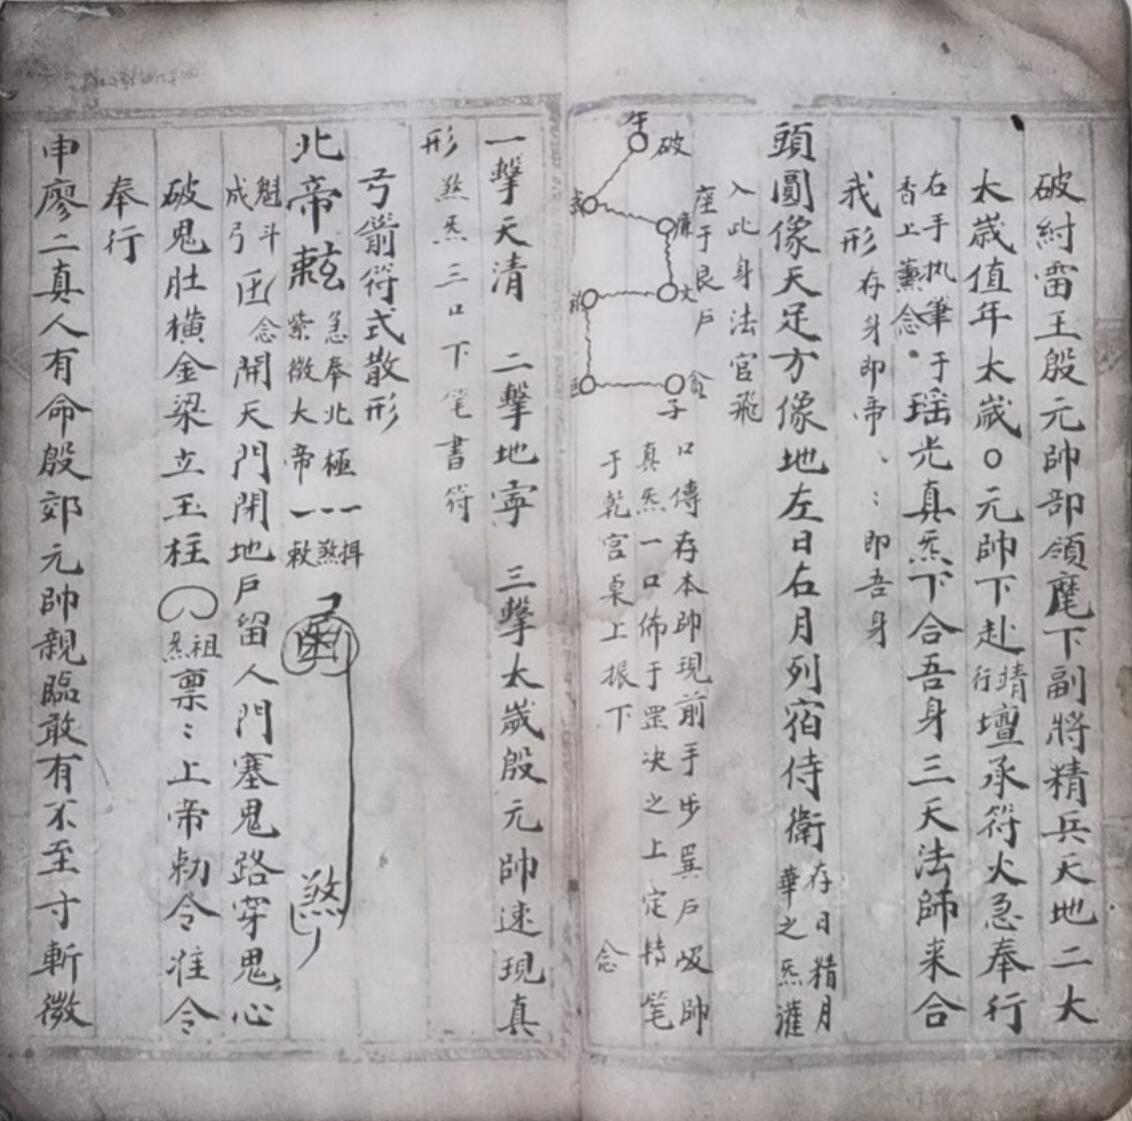 破紂雷王殷元帥部領麾下副將精兵天地二大
太歲值年太歲○元帥下赴靖行壇承符火急奉行
右手执筆于香上薰念瑶光真炁下合吾身三天法師来合
我形存身即帝、〻即吾身
頭圓像天足方像地左日右月列宿侍衛存日精月華之炁灌
入此身法官飛
座于艮户
午
破
武
廉
文
祿
巨
貪
子
口傳存本帥現前手步巽户吸帥
真炁一口佈于罡决之上定轉笔
于乾宫桌上振下 念
一擊天清 二擊地寧 三擊太歲殷元帥速現真
形煞炁三口下笔書符
弓箭符式散形
北帝敕急奉北極紫微大帝敕煞
煞
魁斗成弓念開天門閉地户留人門塞鬼路穿鬼心
破鬼肚橫金梁立玉柱祖炁禀〻上帝勅令准令
奉行
申廖二真人有命殷郊元帥親臨敢有不至寸斬微